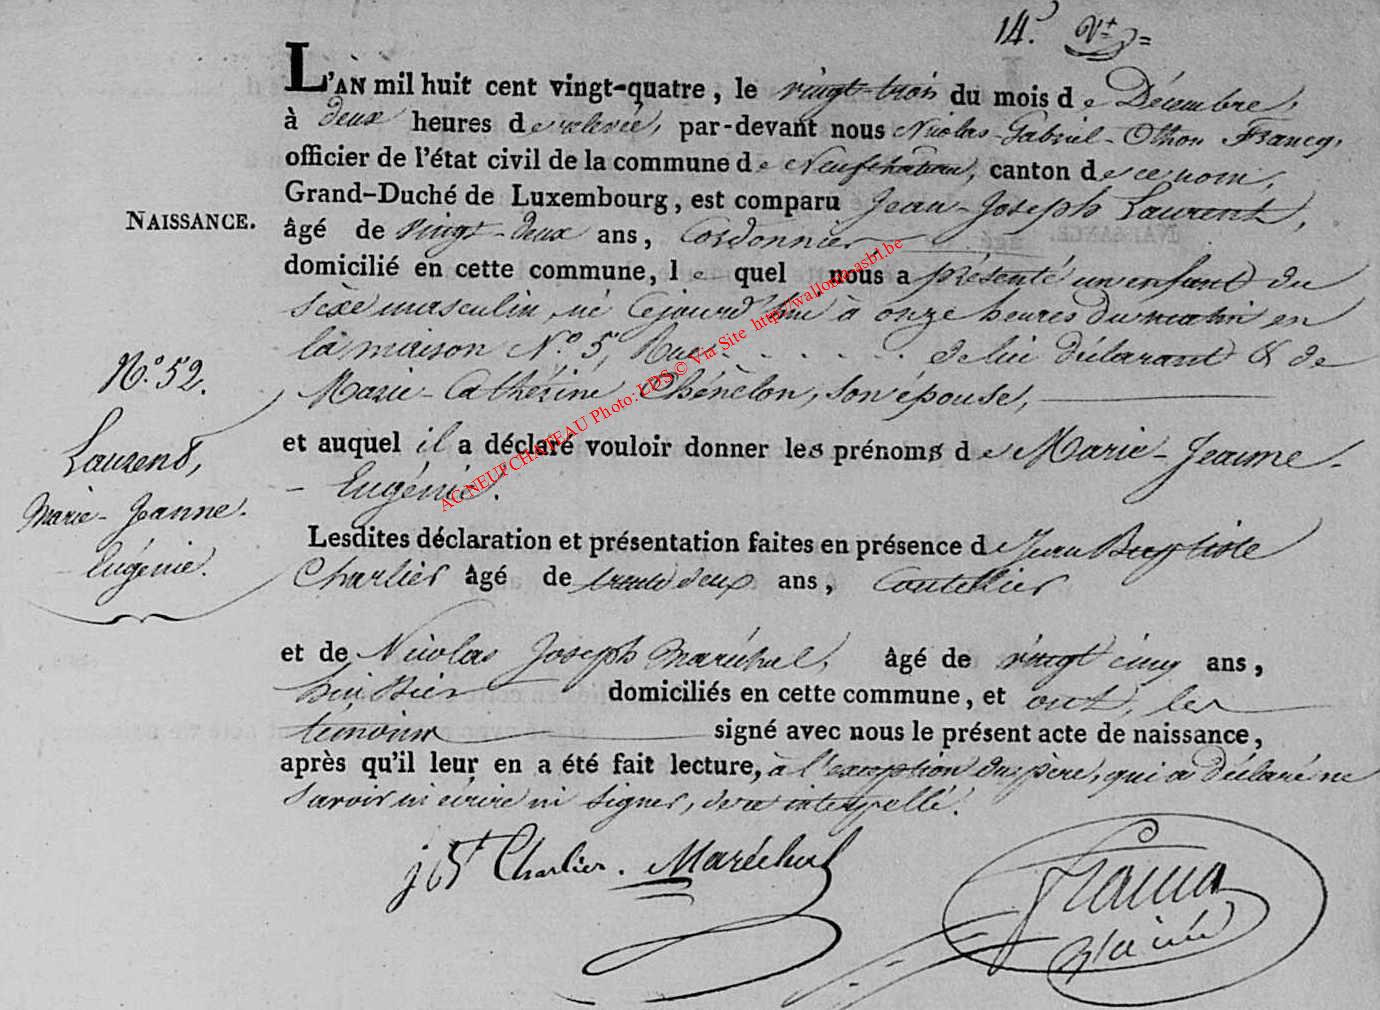 14. Vt =
L'AN mil huit cent vingt-quatre, le vingt-trois du mois de Décembre,
à deux heures de relevée, par-devant nous Nicolas-Gabriel-Othon Francq,
officier de l'état civil de la commune de Neufchateau, canton de ce nom,
Grand-Duché de Luxembourg, est comparu Jean-Joseph Laurent,
NAISSANCE.
âgé de vingt-deux ans, Cordonnier,
domicilié en cette commune, le quel nous a présenté un enfant du
sexe masculin, né Cejourd'hui à onze heures du matin en
la maison N.º 5, Rue . . . . . . . de lui déclarant & de
Marie-Cathérine Chénelon, son épouse,
et auquel il a déclaré vouloir donner les prénoms de Marie-Jeanne-
- Eugénie.
N.º 52.
Laurent,
Marie-Jeanne.
Eugénie.
Lesdites déclaration et présentation faites en présence de Jean Baptiste
Charlier âgé de trente deux ans, Coutellier
et de Nicolas Joseph Maréchal, âgé de vingt cinq ans,
huissier domiciliés en cette commune, et ont, les
temoins signé avec nous le présent acte de naissance,
après qu'il leur en a été fait lecture, à l'exception du père, qui a déclaré ne
savoir ni écrire ni signer, de ce interpellé.
j bt Charlier. Maréchal
Francq
AC NEUFCHATEAU Photo: LDS © Via Site http://wallonia-asbl.be